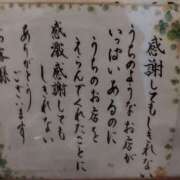 感謝してもしきれない
うちのようなお店が
いっぱいあるのに
うちのお店を
えらんでくれたことに
感激感謝しても
しきれない
ありがとう
ございます
お客様